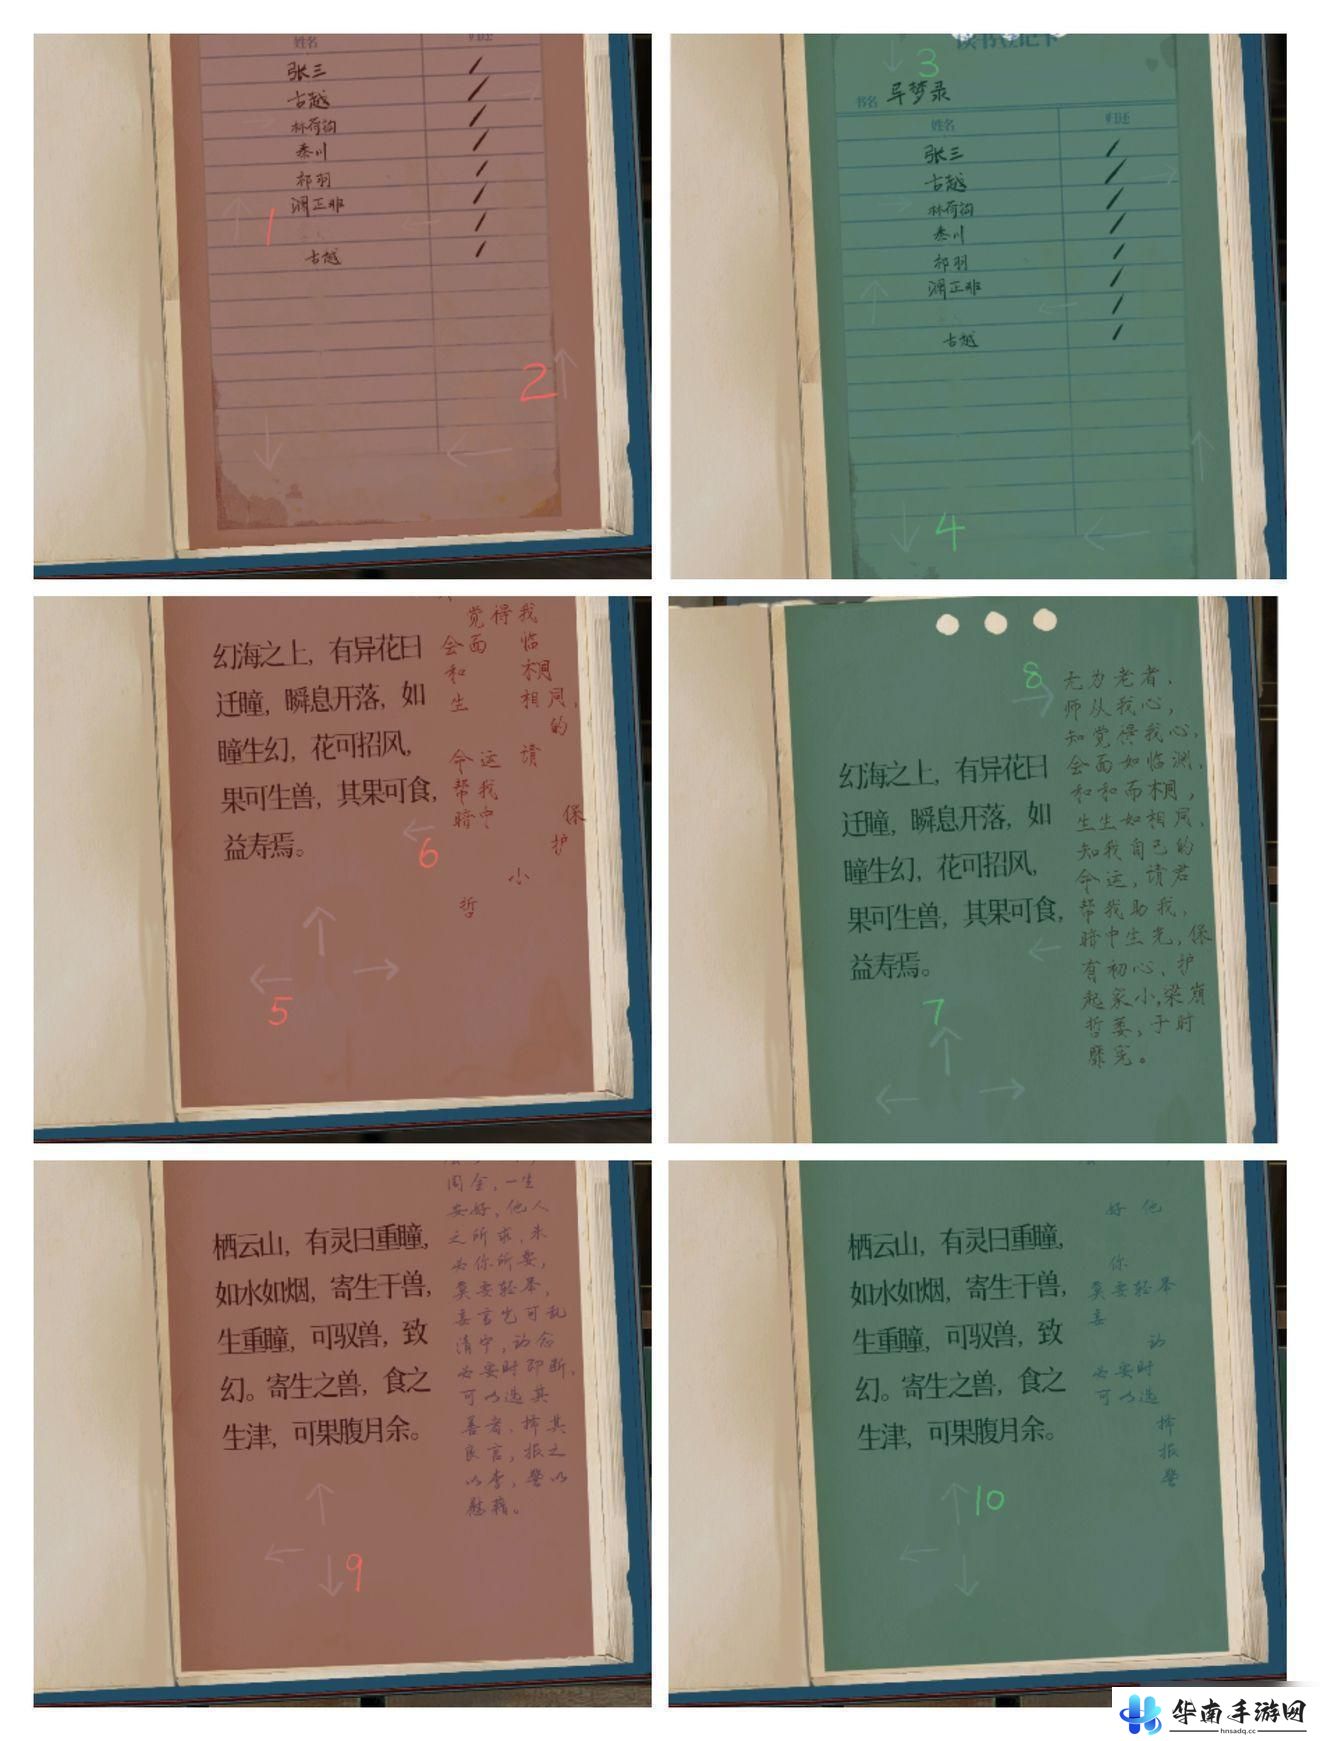 姓名 归还
张三
古越
林荷钩
秦川
祁羽
渊正非
古越
1
2
读书登记卡
3
书名 异梦录
姓名 归还
张三
古越
林荷钩
秦川
祁羽
渊正非
古越
4
幻海之上，有异花曰
迁瞳，瞬息开落，如
瞳生幻，花可招风，
果可生兽，其果可食，
益寿焉。
觉得我
会面 临
和 桐
生 相同，
的
命运 请
帮我
暗中 保
护
小
哲
6
5
8
幻海之上，有异花曰
迁瞳，瞬息开落，如
瞳生幻，花可招风，
果可生兽，其果可食，
益寿焉。
无为老者，
师从我心，
知觉得我心，
会面如临渊，
和和而桐，
生生如相同，
知我自己的
命运，请君
帮我助我，
暗中生光，保
有初心，护
起家小，梁崩
哲萎，于时
靡宪。
7
栖云山，有灵曰重瞳，
如水如烟，寄生干兽，
生重瞳，可驭兽，致
幻。寄生之兽，食之
生津，可果腹月余。
周全，一生
安好，他人
之所求，未
必你所要，
莫要轻举，
妄言岂可乱
清宁，动念
必要时即断，
可以选其
善者，择其
良言，报之
以李，警以
慰藉。
9
栖云山，有灵曰重瞳，
如水如烟，寄生干兽，
生重瞳，可驭兽，致
幻。寄生之兽，食之
生津，可果腹月余。
好 他
你
莫要轻举
妄
动
必要时
可以选
择
报
警
10
华南手游网
hnsadq.cc